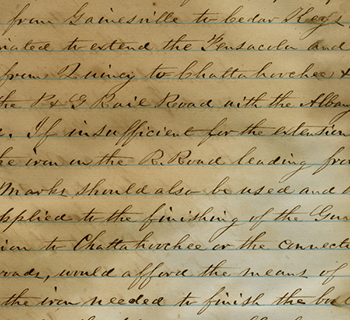 from Gainesville to Cedar Keys,
inated to extend the Pensacola and
from Quincy to Chattahoochee &
the P & G Rail Road with the Albany
If insufficient for the extension
he iron on the R. Road leading from
Marks should also be used and
applied to the finishing of the
ion to Chattahoochee or the connect
roads, would afford the means of
the iron needed to finish the